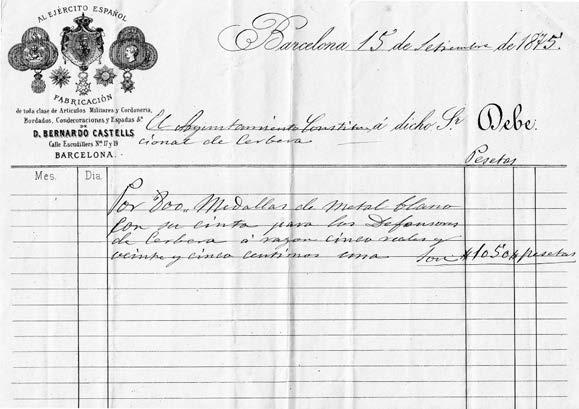 AL EJÉRCITO ESPAÑOL
FABRICACIÓN
de toda clase de Artículos Militares y Cordonería,
Bordados, Condecoraciones y Espadas &a
DE
D. BERNARDO CASTELLS
Calle Escudillers Nos 17 y 19
BARCELONA.
Barcelona 15 de Setiembre de 1875
El Ayuntamiento Constitu- á dicho Sr Debe.
cional de Cerbera
Pesetas
Mes. Dia.
Por 800 Medallas de Metal blanco
con su cinta para los Defensores
de Cerbera a razon cinco reales y
veinte y cinco centimos una Son # 1050 # pesetas